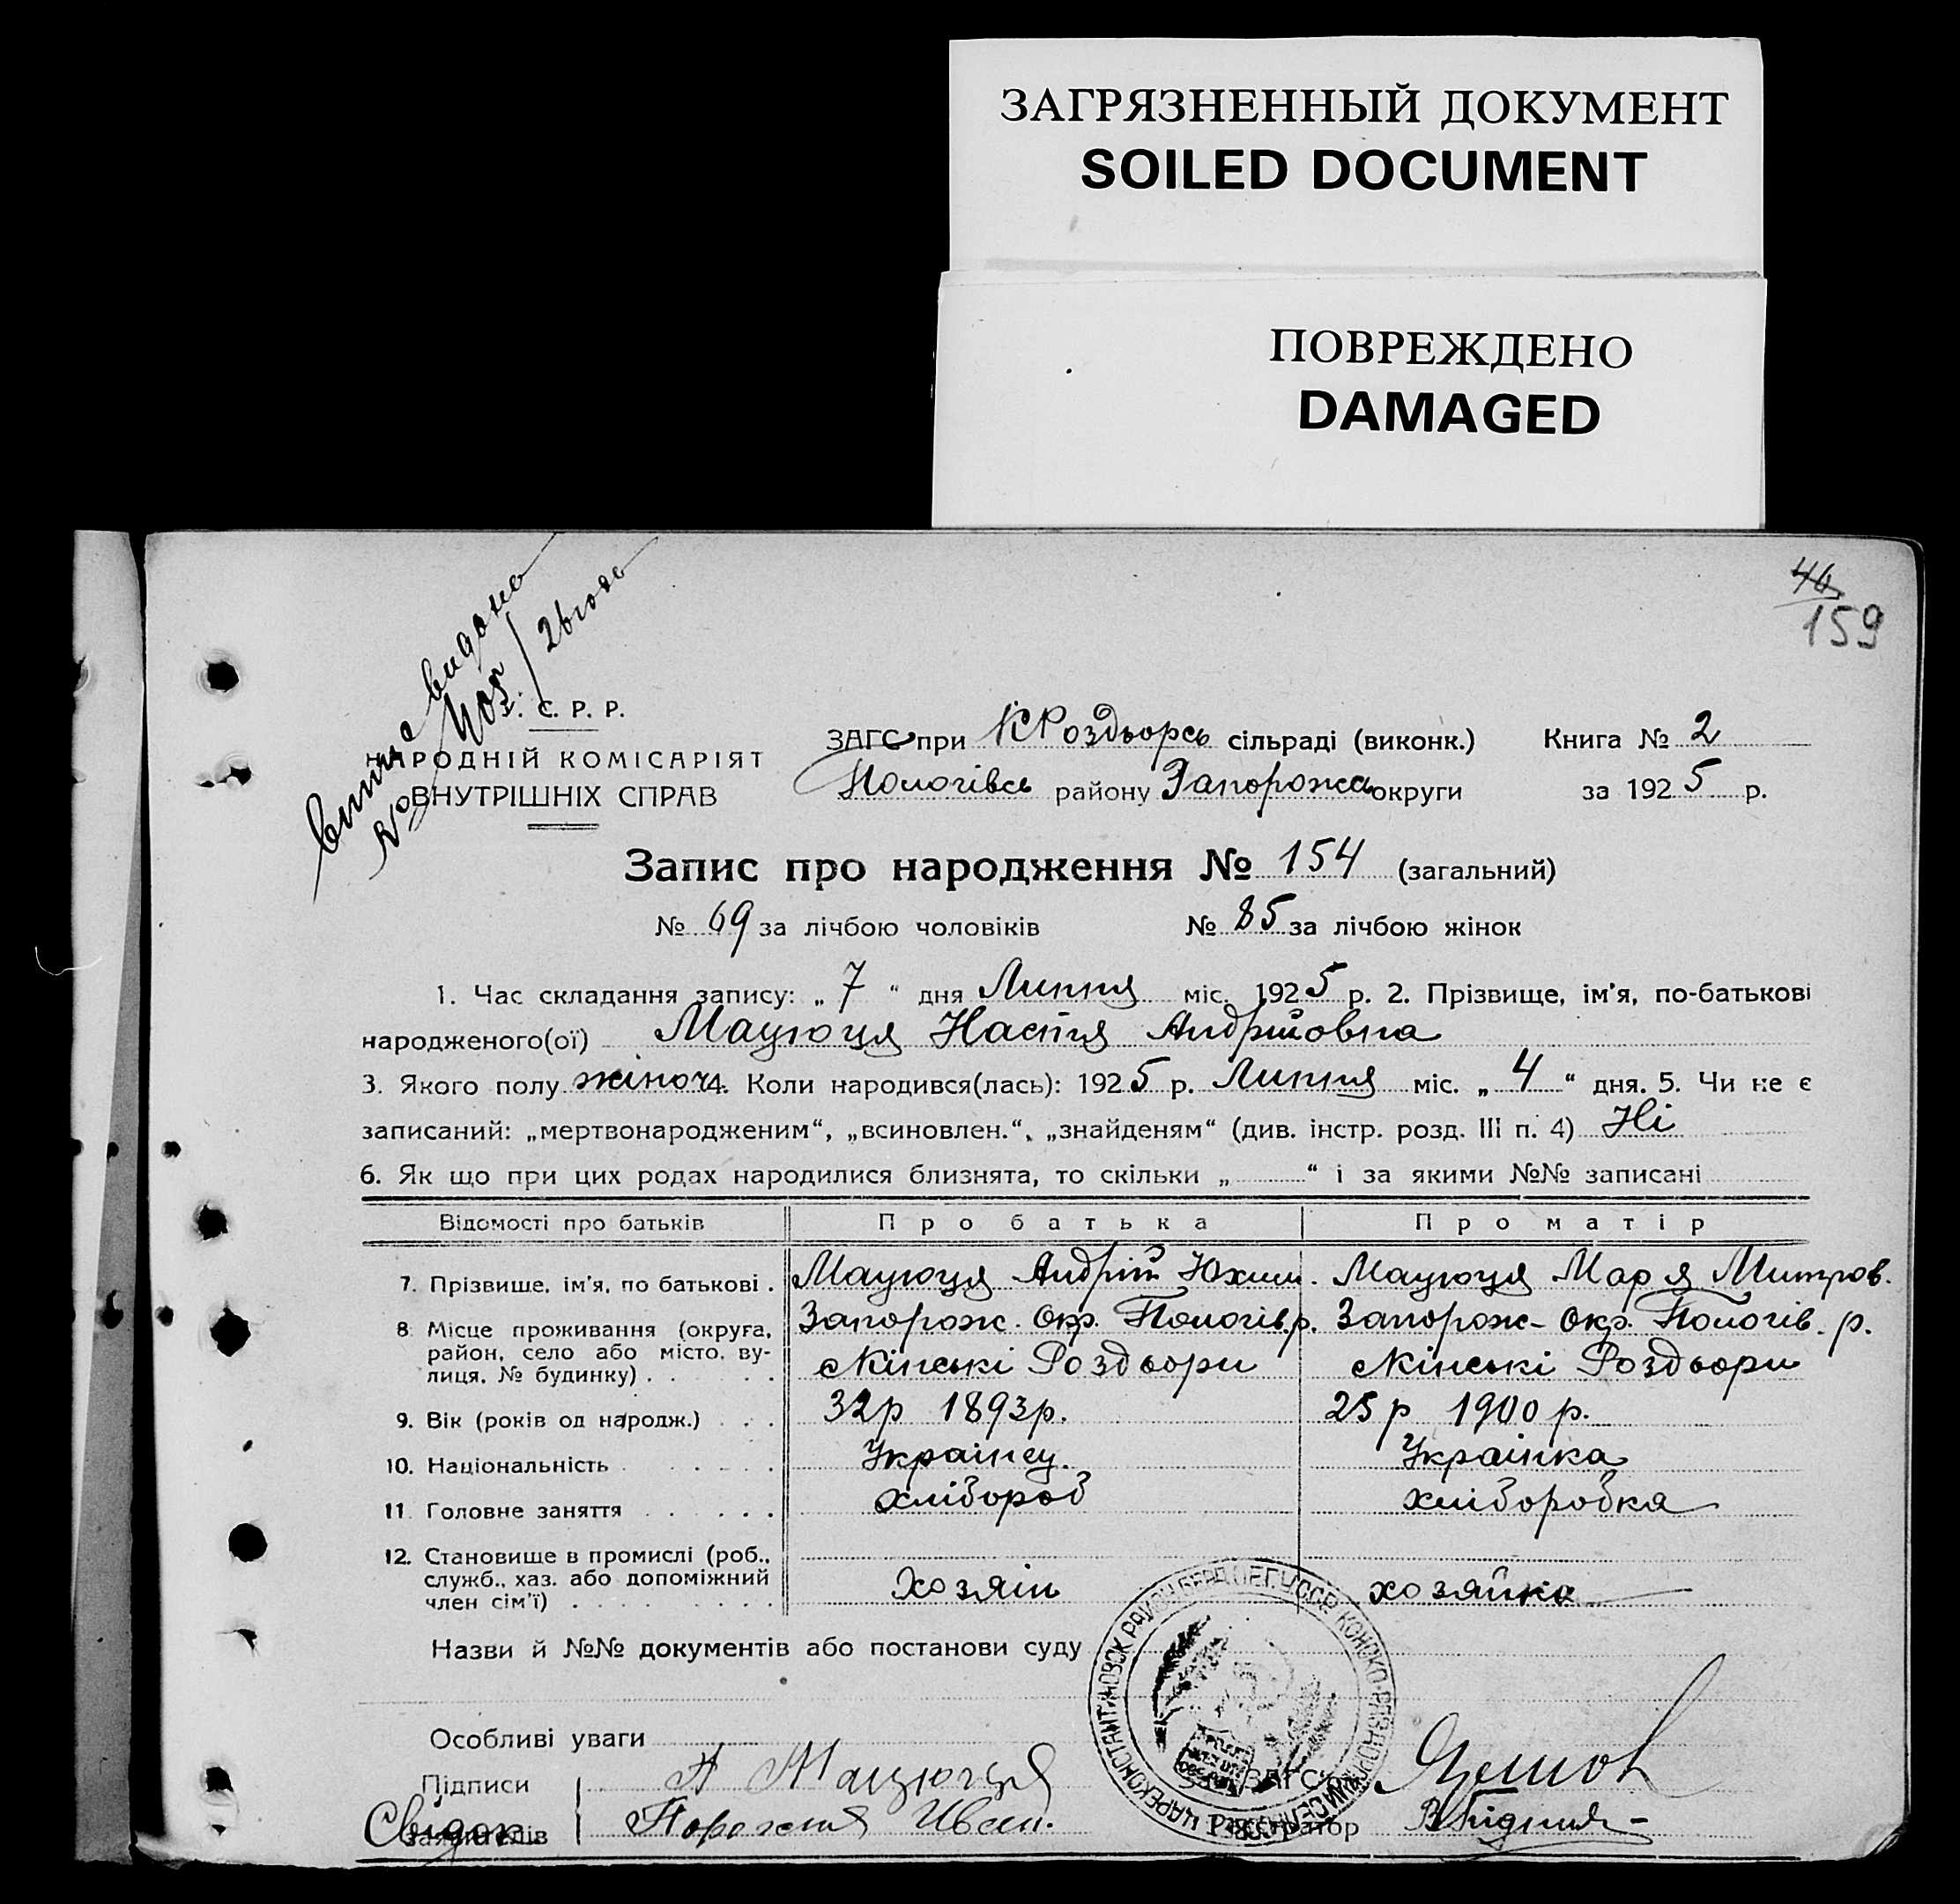 ЗАГРЯЗНЕННЫЙ ДОКУМЕНТ
SOILED DOCUMENT
ПОВРЕЖДЕНО
DAMAGED
46
159
видано
У. С. Р. Р.
НАРОДНІЙ КОМІСАРІЯТ
ВНУТРІШНІХ СПРАВ
ЗАГС при К Роздорсь сільраді (виконк.) Книга № 2
Пологівсь району Запорожсь округи за 1925 р.
Запис про народження № 154 (загальний)
№ 69 за лічбою чоловіків № 85 за лічбою жінок
1. Час складання запису: „ 7 “ дня Липня міс. 1925 р. 2. Прізвище, ім'я, по-батькові
народженого(ої) Мацюця Настя Андріївна
3. Якого полу жіноч 4. Коли народився(лась): 1925 р. Липня міс. „ 4 “ дня. 5. Чи не є
записаний: „мертвонародженим“, „всиновлен.“, „знайденям“ (див. інстр. розд. III п. 4) Ні
6. Як що при цих родах народилися близнята, то скільки „ “ і за якими №№ записані
Відомості про батьків Про батька Про матір
7. Прізвище, ім'я, по батькові . Мацюця Андрій Юхим. Мацюця Мар я Митров.
8 Місце проживання (округа, район, село або місто, вулиця, № будинку) . Запорож. Окр. Пологів. р. Кінські Роздори Запорож- Окр. Пологів. р. Кінські Роздори
9. Вік (років од народж.) . . . 32р 1893р. 25 р 1900 р.
10. Національність Українец. Українка
11. Головне заняття хлібороб хліборобка
12. Становище в промислі (роб., служб., хаз. або допоміжний член сім'ї) Хозяін хозяйка
Назви й №№ документів або постанови суду
Особливі уваги
Підписи А Мацюця ЗАГС'ом
Свідок. заявителів Іван. Реєстратор